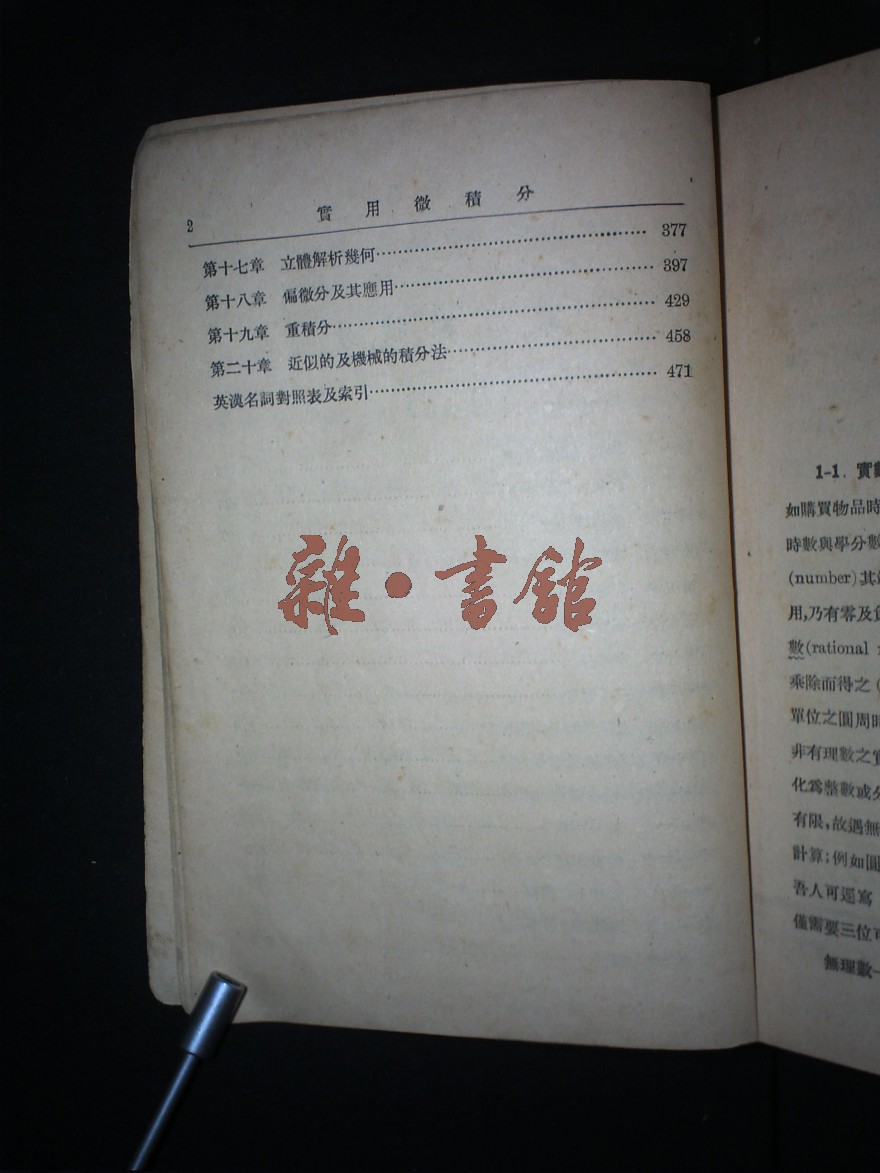 2
實用微積分
第十七章 立體解析幾何 377
第十八章 偏微分及其應用 397
第十九章 重積分 429
第二十章 近似的及機械的積分法 458
英漢名詞對照表及索引 471
雜·書館
1-1. 實數
如購買物品時
時數與學分數
(number)其
用,乃有零及負
數(rational
乘除而得之(
單位之圓周時
非有理數之實
化為整數或分
有限,故遇無
計算;例如圓
吾人可逕寫
僅需要三位
無理數